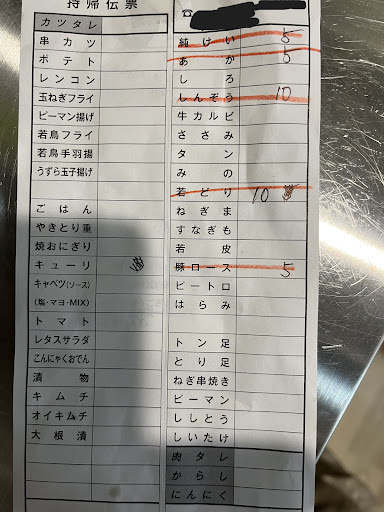 持帰伝票
カツタレ
串カツ
ポテト
レンコン
玉ねぎフライ
ピーマン揚げ
若鳥フライ
若鳥手羽揚
うずら玉子揚げ
ごはん
やきとり重
焼おにぎり
キューリ
キャベツ(ソース)
(塩・マヨ・MIX)
トマト
レタスサラダ
こんにゃくおでん
漬物
キムチ
オイキムチ
大根漬
☎
純けい 5
あか 5
しろ
しんぞう 10
牛カルビ
ささみ
タン
みの
若どり 10
ねぎま
すなぎも
若皮
豚ロース 5
ピートロ
はらみ
トン足
とり足
ねぎ串焼き
ピーマン
ししとう
しいたけ
肉タレ
からし
にんにく